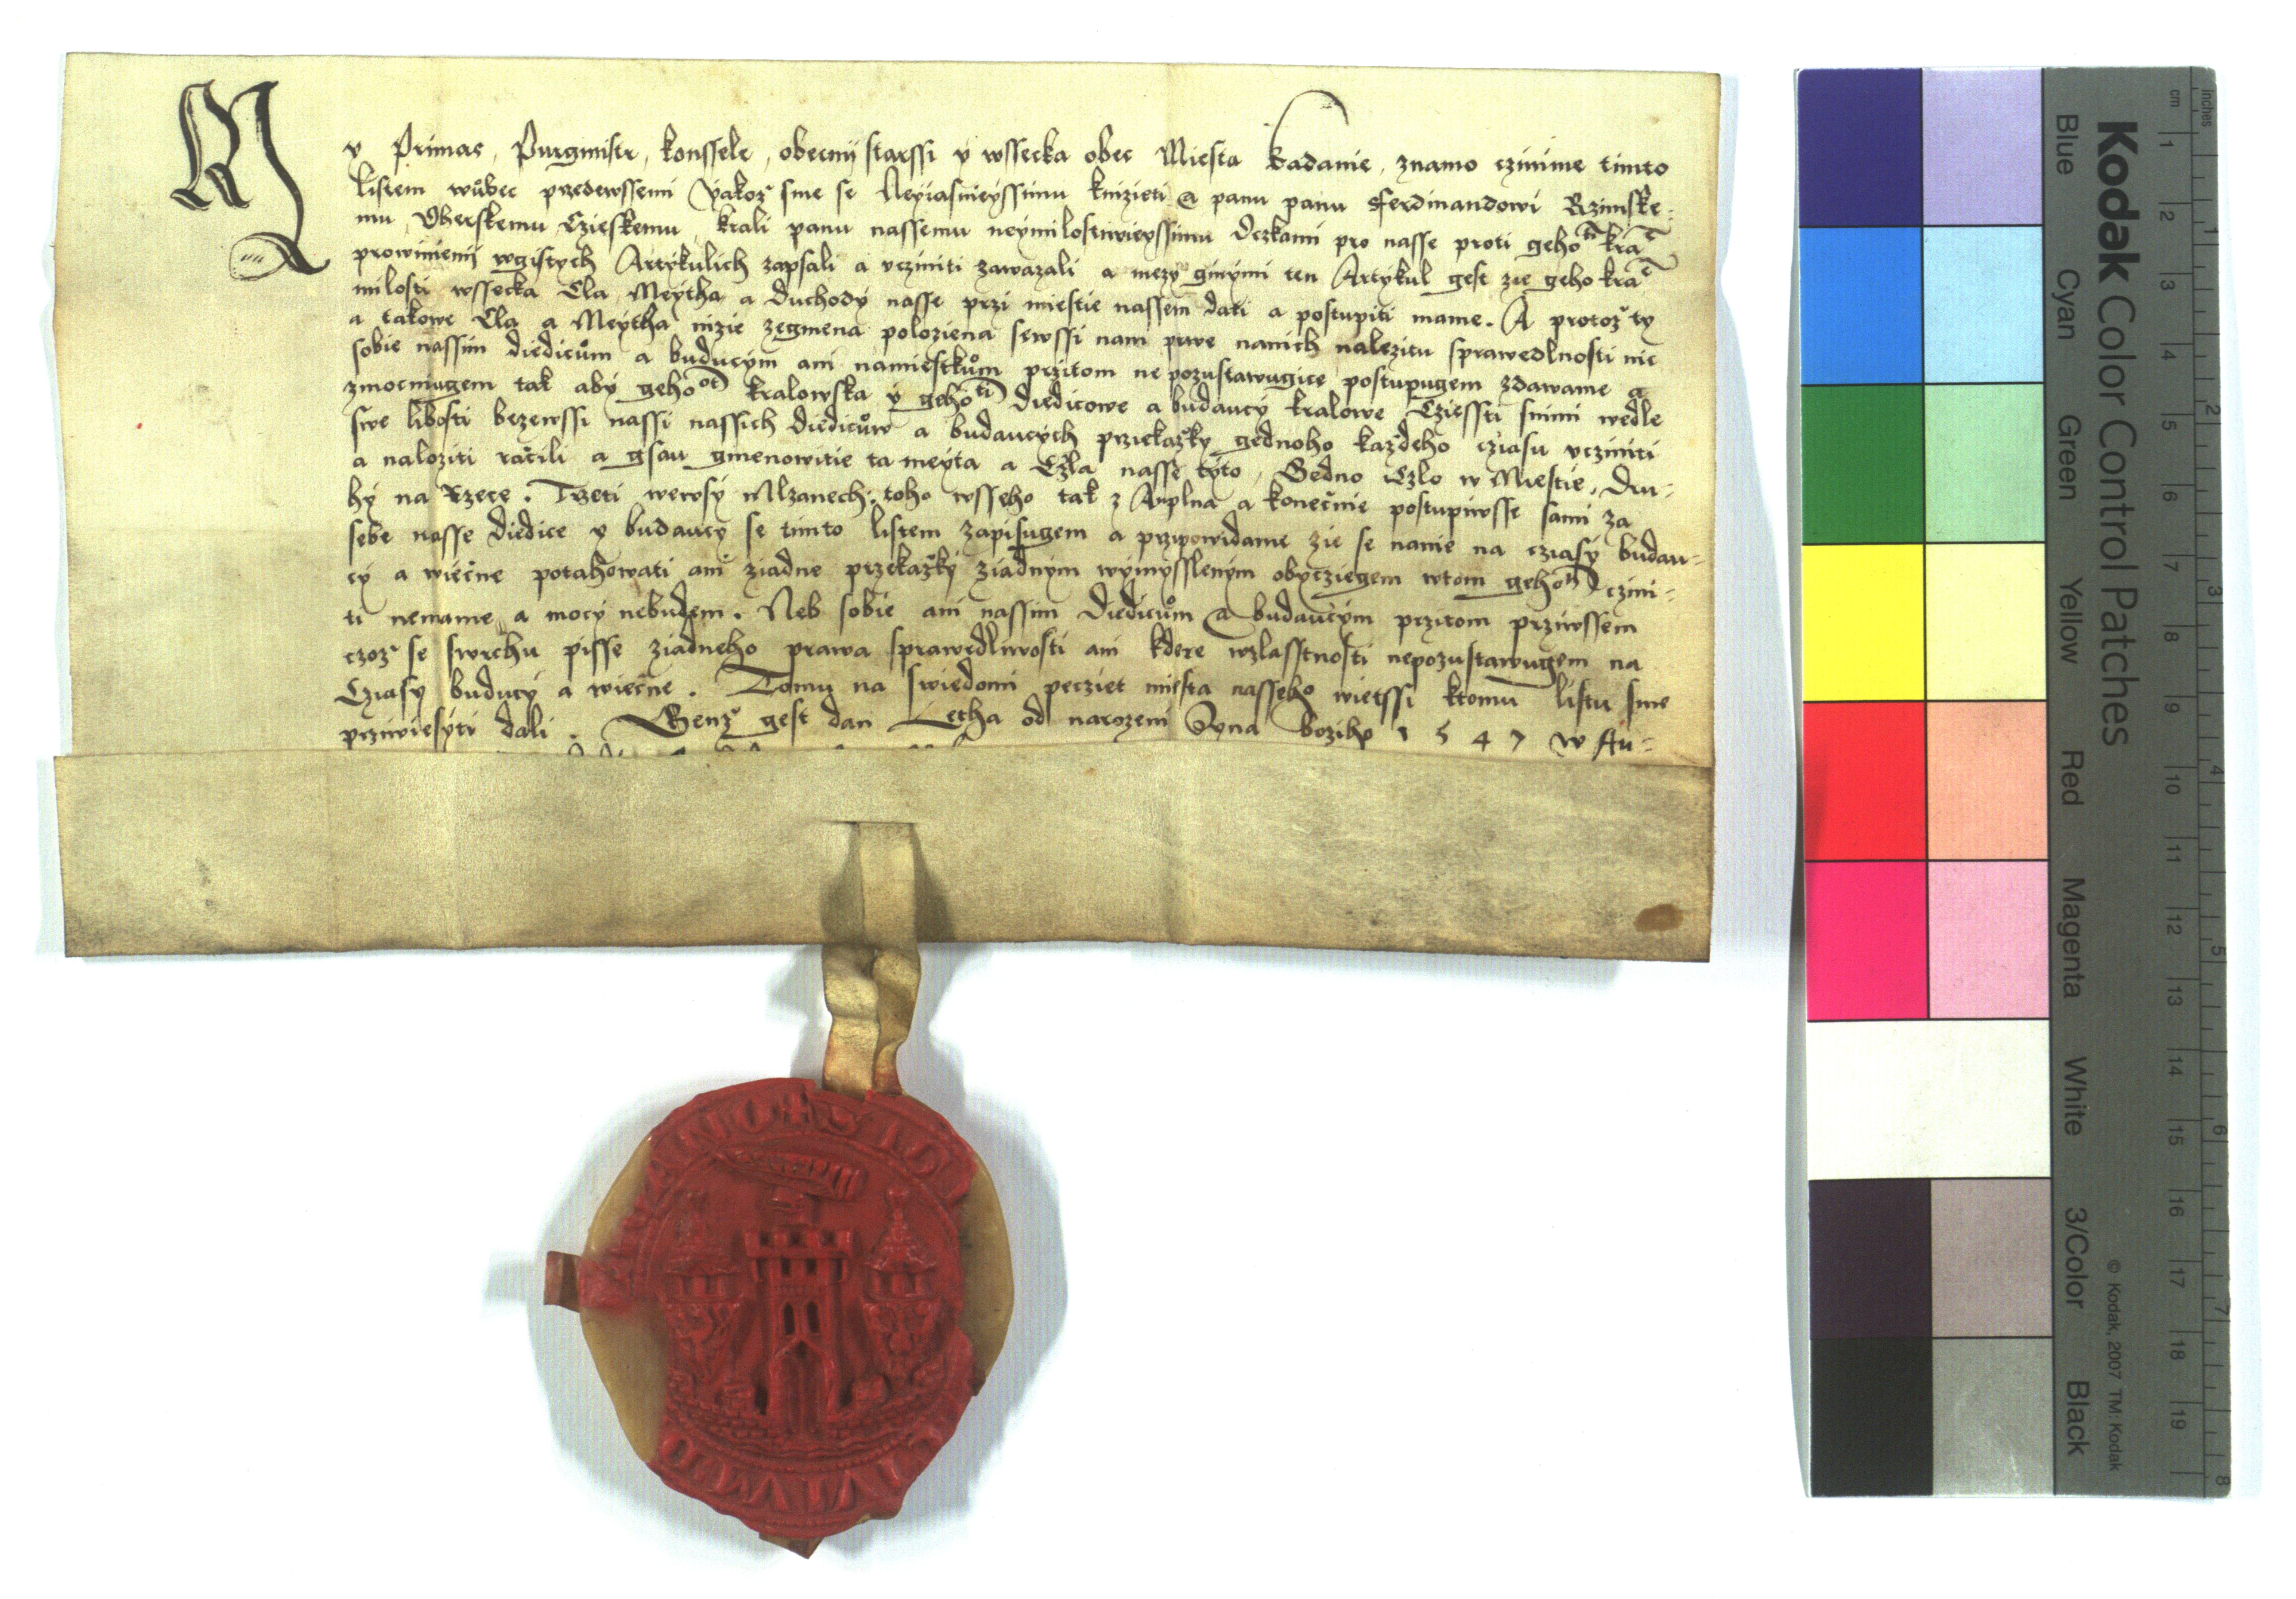 My Primas, Purgmistr, konssele, obecnij starssi y wssecka obec Miesta Kadanie, znamo czinime timto
listem wůbec przedewssemi Yakoz sme se Neyiasnieyssimu knizieti a panu panu Ferdinandowi Rzimske-
mu, Vherskemu Czieskemu, krali panu nassemu neymilostiwieyssimu Oczkami pro nasse proti geho kra
prowinienij wgistych Artykulich zapsali a vcziniti zawazali a mezy ginymi ten Artykul gest zie geho kra
milosti wssecka Cla Meytha a duchody nasse przi miestie nassem dati a postupiti mame. A protoz ty
a takowe Cla a Meytha nizie zegmena poloziena sewssi nam prwe nanich nalezitu sprawedlnosti nic
sobie nassim diedicům a buducym ani namiestkům przitom ne pozustawugice postupugem zdawame a
zmocniugem tak aby geho kralowska y geho diedicowe a budaucy kralowe Cziessti snimi wedle
swe libosti bezewssi nassi nassich diedicůw a budaucych przekazky gednoho kazdeho cziasu vcziniti
a naloziti racili a gsau gmenowitie ta meyta a Czla nasse tyto, Gedno Czlo w Miestie, Dru-
hy na Rzece. Trzeti wewsy Mlzanech. toho wsseho tak z Auplna a konečnie postupiwsse sami za
sebe nasse diedice y budaucy se timto listem zapisugem a przipowidame zie se nanie na cziasy budau-
cy a wiečne potahowati ani ziadne przekazky ziadnym wymysslenym obycziegem wtom geho czini-
ti nemame, a mocy nebudem. Neb sobie ani nassim diedicům a budaucym przitom prziwssem
czoz se swrchu pisse ziadneho prawa sprawedliwosti ani kdere wzlasstnosti nepozustawugem na
Cziasy buducy a wiečne. Tomu na swiedomi pecziet miesta nasseho wietssi ktomu listu sme
prziwiesyti dali. Genz gest dan Letha od narozeni Syna boziho 1 5 4 7 w Au-
Kodak Color Control Patches
Blue Cyan Green Yellow Red Magenta White 3/Color Black
© Kodak, 2007 TM: Kodak
inches 1 2 3 4 5 6 7 8
cm 1 2 3 4 5 6 7 8 9 10 11 12 13 14 15 16 17 18 19